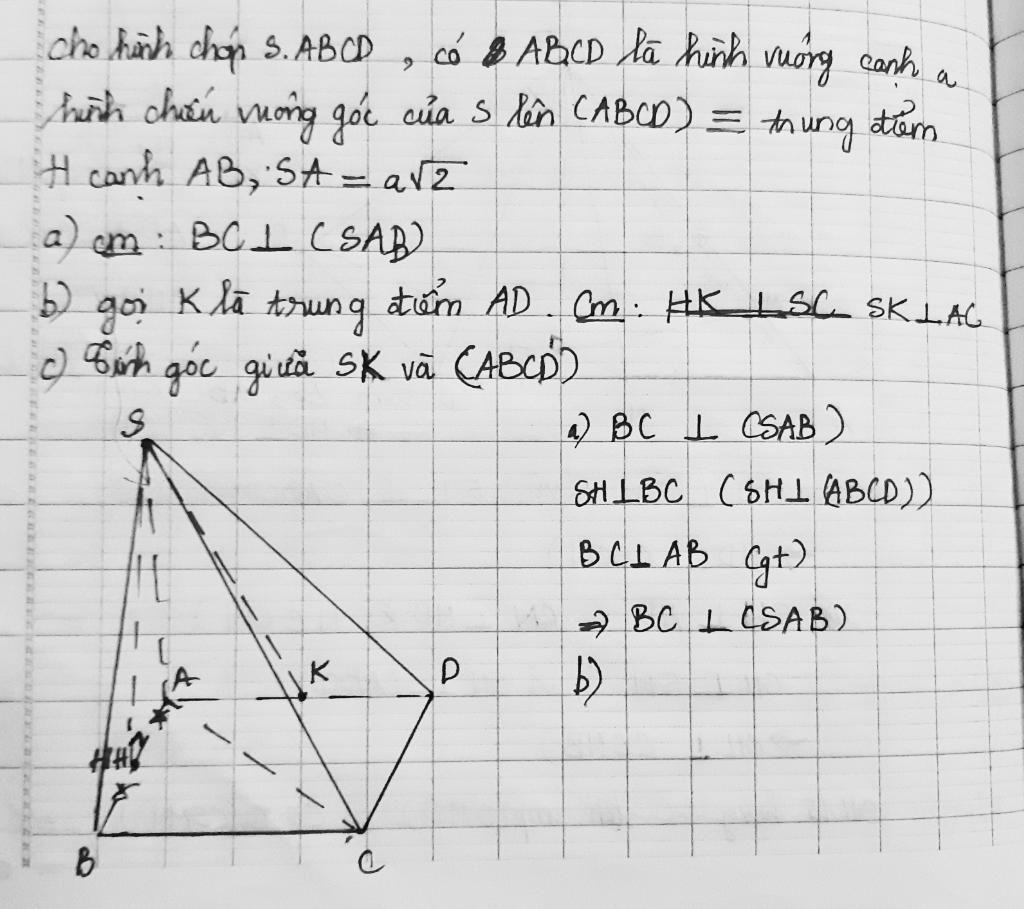 cho hình chóp S.ABCD, có ABCD là hình vuông cạnh a
hình chiếu vuông góc của S lên (ABCD) ≡ trung điểm
H cạnh AB, SA = a√2
a) cm: BC ⊥ (SAB)
b) gọi K là trung điểm AD. Cm: HK ⊥ SC SK ⊥ AC
c) Tính góc giữa SK và (ABCD)
S
a) BC ⊥ (SAB)
SH ⊥ BC (SH ⊥ (ABCD))
BC ⊥ AB (gt)
⇒ BC ⊥ (SAB)
A K D
b)
H H
B C